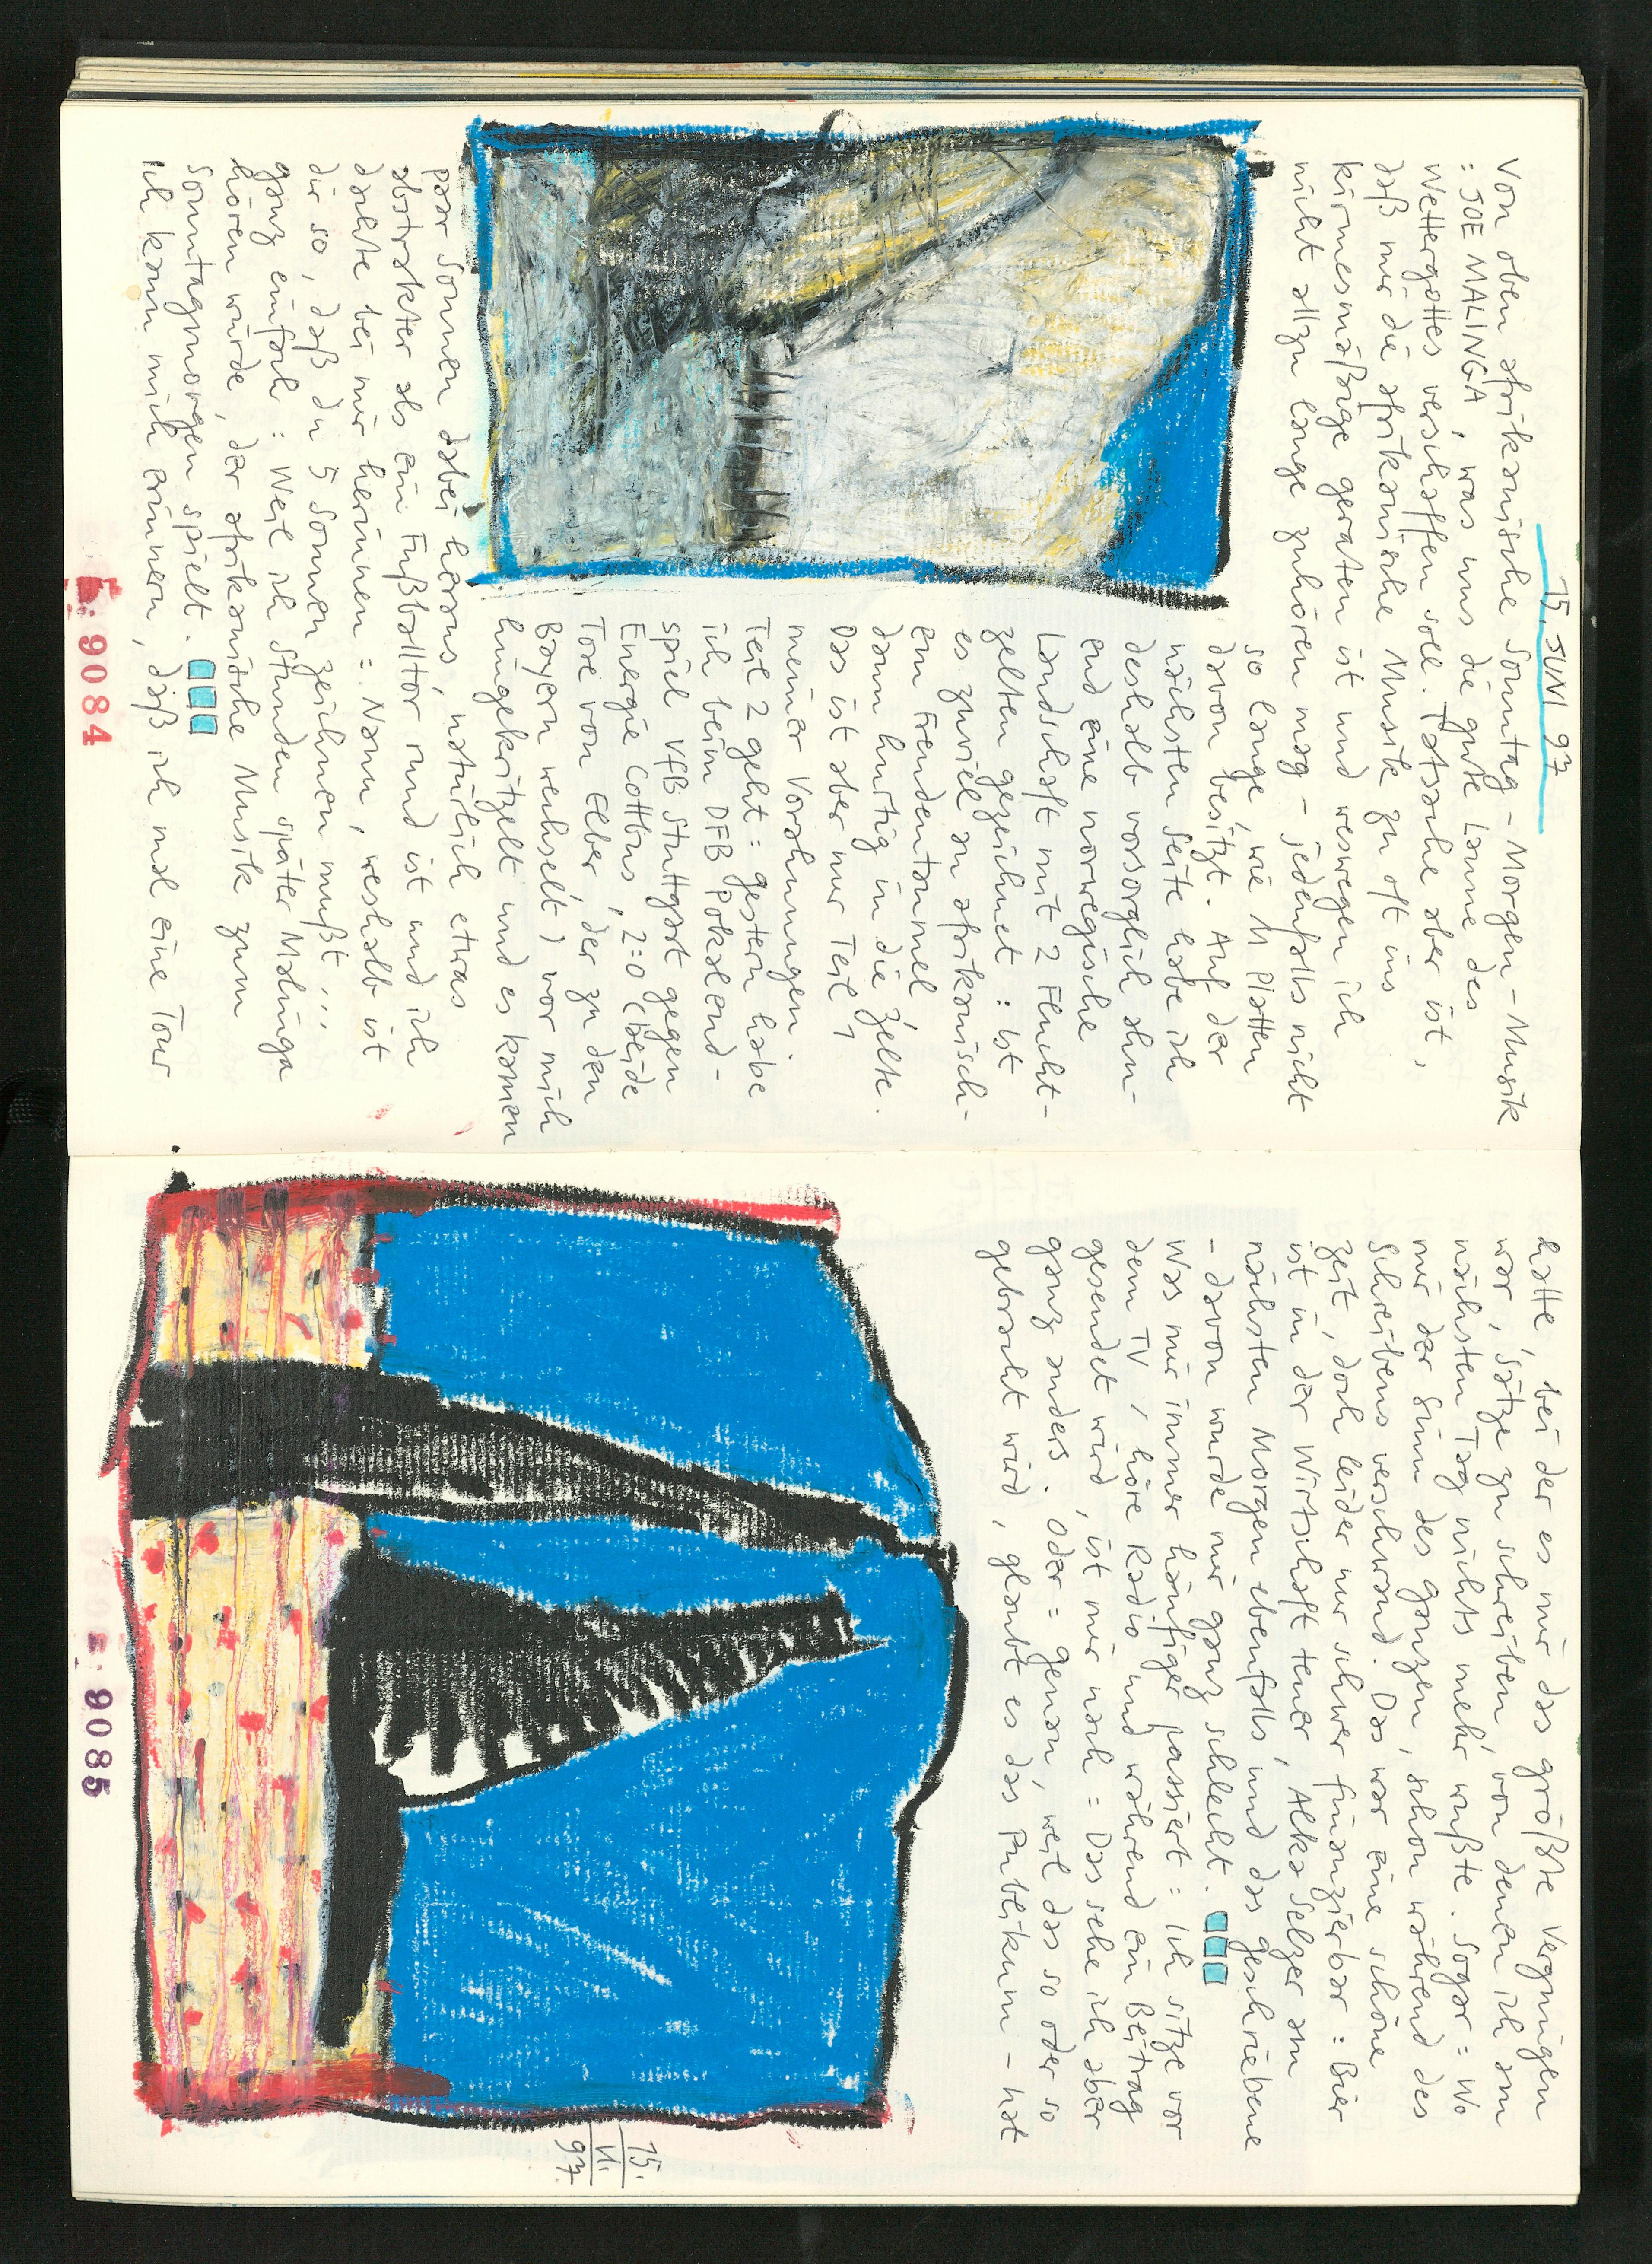 15. JUNI 97
Von oben afrikanische Sonntag-Morgen-Musik
: JOE MALINGA, was uns die gute Laune des
Wettergottes verschaffen soll. Tatsache aber ist,
daß mir die afrikanische Musik zu oft ins
kirmesmäßige geraten ist und weswegen ich
nicht allzu lange zuhören mag - jedenfalls nicht
so lange, wie M Platten
davon besitzt. Auf der
nächsten Seite habe ich
deshalb vorsorglich
und eine norwegische
Landschaft mit 2 Flucht-
zelten gezeichnet: Ist
es zuviel an afrikanisch-
em Freudentaumel
dann hurtig in die Zelte.
Das ist aber nur Teil 1
meiner Vorahnungen.
Teil 2 geht: gestern habe
ich beim DFB Pokalend-
spiel VfB Stuttgart gegen
Energie Cottbus, 2:0 (beide
Tore von Elber, der zu den
Bayern wechselt) vor mich
hingekritzelt und es kamen
paar Sonnen dabei heraus, natürlich etwas
abstrakter als ein Fußballtor rund ist und ich
dachte bei mir herinnen: Nanu, weshalb ist
dir so, daß du 5 Sonnen zeichnen mußt ...
ganz einfach: Weil ich Stunden später Malinga
hören würde, der afrikanische Musik zum
Sonntagmorgen spielt.
Ich kann mich erinnern, daß ich mal eine Tour
E. 9084
hatte, bei der es mir das größte Vergnügen
war, Sätze zu schreiben, von denen ich am
nächsten Tag nichts mehr wußte. Sogar: Wo
mir der Sinn des ganzen, schon während des
Schreibens verschwand. Das war eine schöne
Zeit, doch leider nur schwer finanzierbar: Bier
ist in der Wirtschaft teuer, Alka Selzer am
nächsten Morgen ebenfalls, und das geschriebene
- davon wurde mir ganz schlecht.
Was mir immer häufiger passiert: Ich sitze vor
dem TV, höre Radio und während ein Beitrag
gesendet wird, ist mir nach: Das sehe ich aber
ganz anders. Oder: genau, weil das so oder so
gebracht wird, glaubt es das Publikum - hat
15.
VI.
97
E. 9085